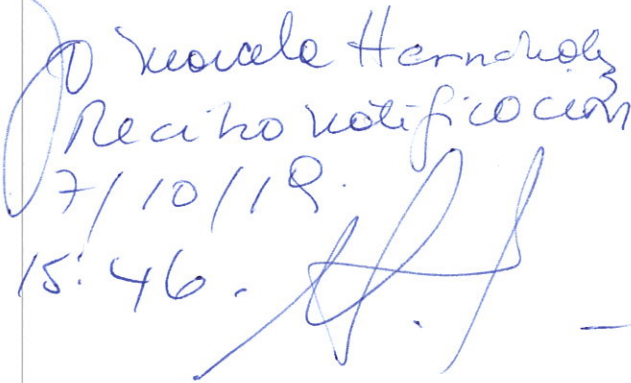 Yo Marcela Hernandez
Recibo notificacion
7/10/19.
15:46.